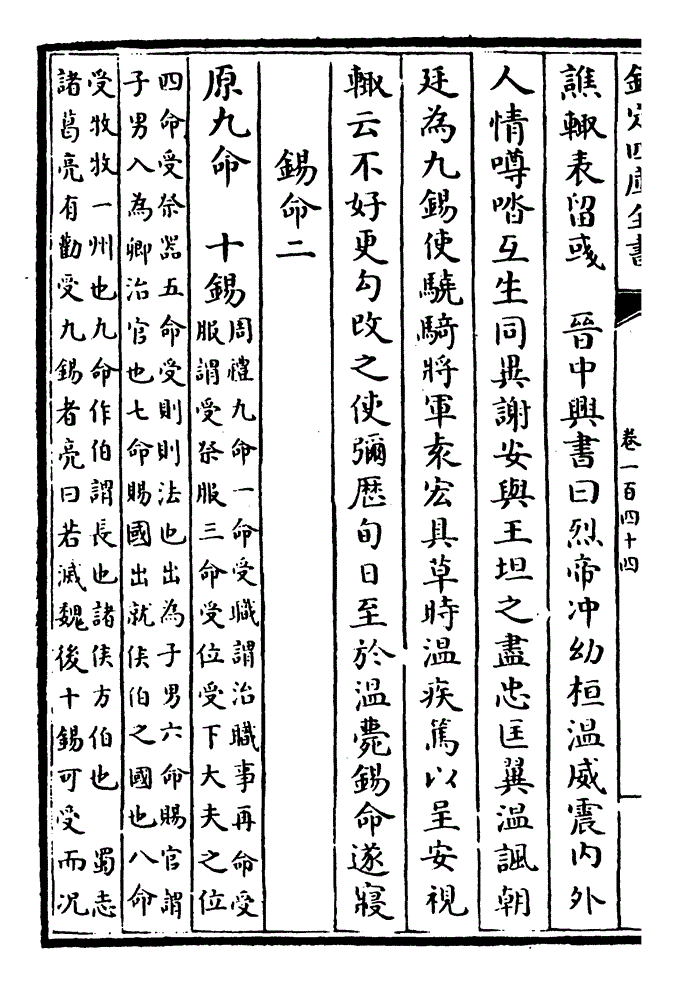 欽定四庫全書
卷一百四十四
譙輙表留彧　晉中興書曰烈帝冲幼桓温威震内外
人情噂㳫互生同異謝安與王坦之盡忠匡翼温諷朝
廷為九錫使驍騎將軍袁宏具草時温疾篤以呈安視
輙云不好更勾改之使彌歴旬日至於温薨錫命遂寢
錫命二
原九命　十錫
周禮九命一命受職謂治職事再命受
服謂受祭服三命受位受下大夫之位
四命受祭器五命受則則法也出為子男六命賜官謂
子男入為卿治官也七命賜國出就侯伯之國也八命
受牧牧一州也九命作伯謂長也諸侯方伯也　蜀志
諸葛亮有勸受九錫者亮曰若滅魏後十錫可受而况